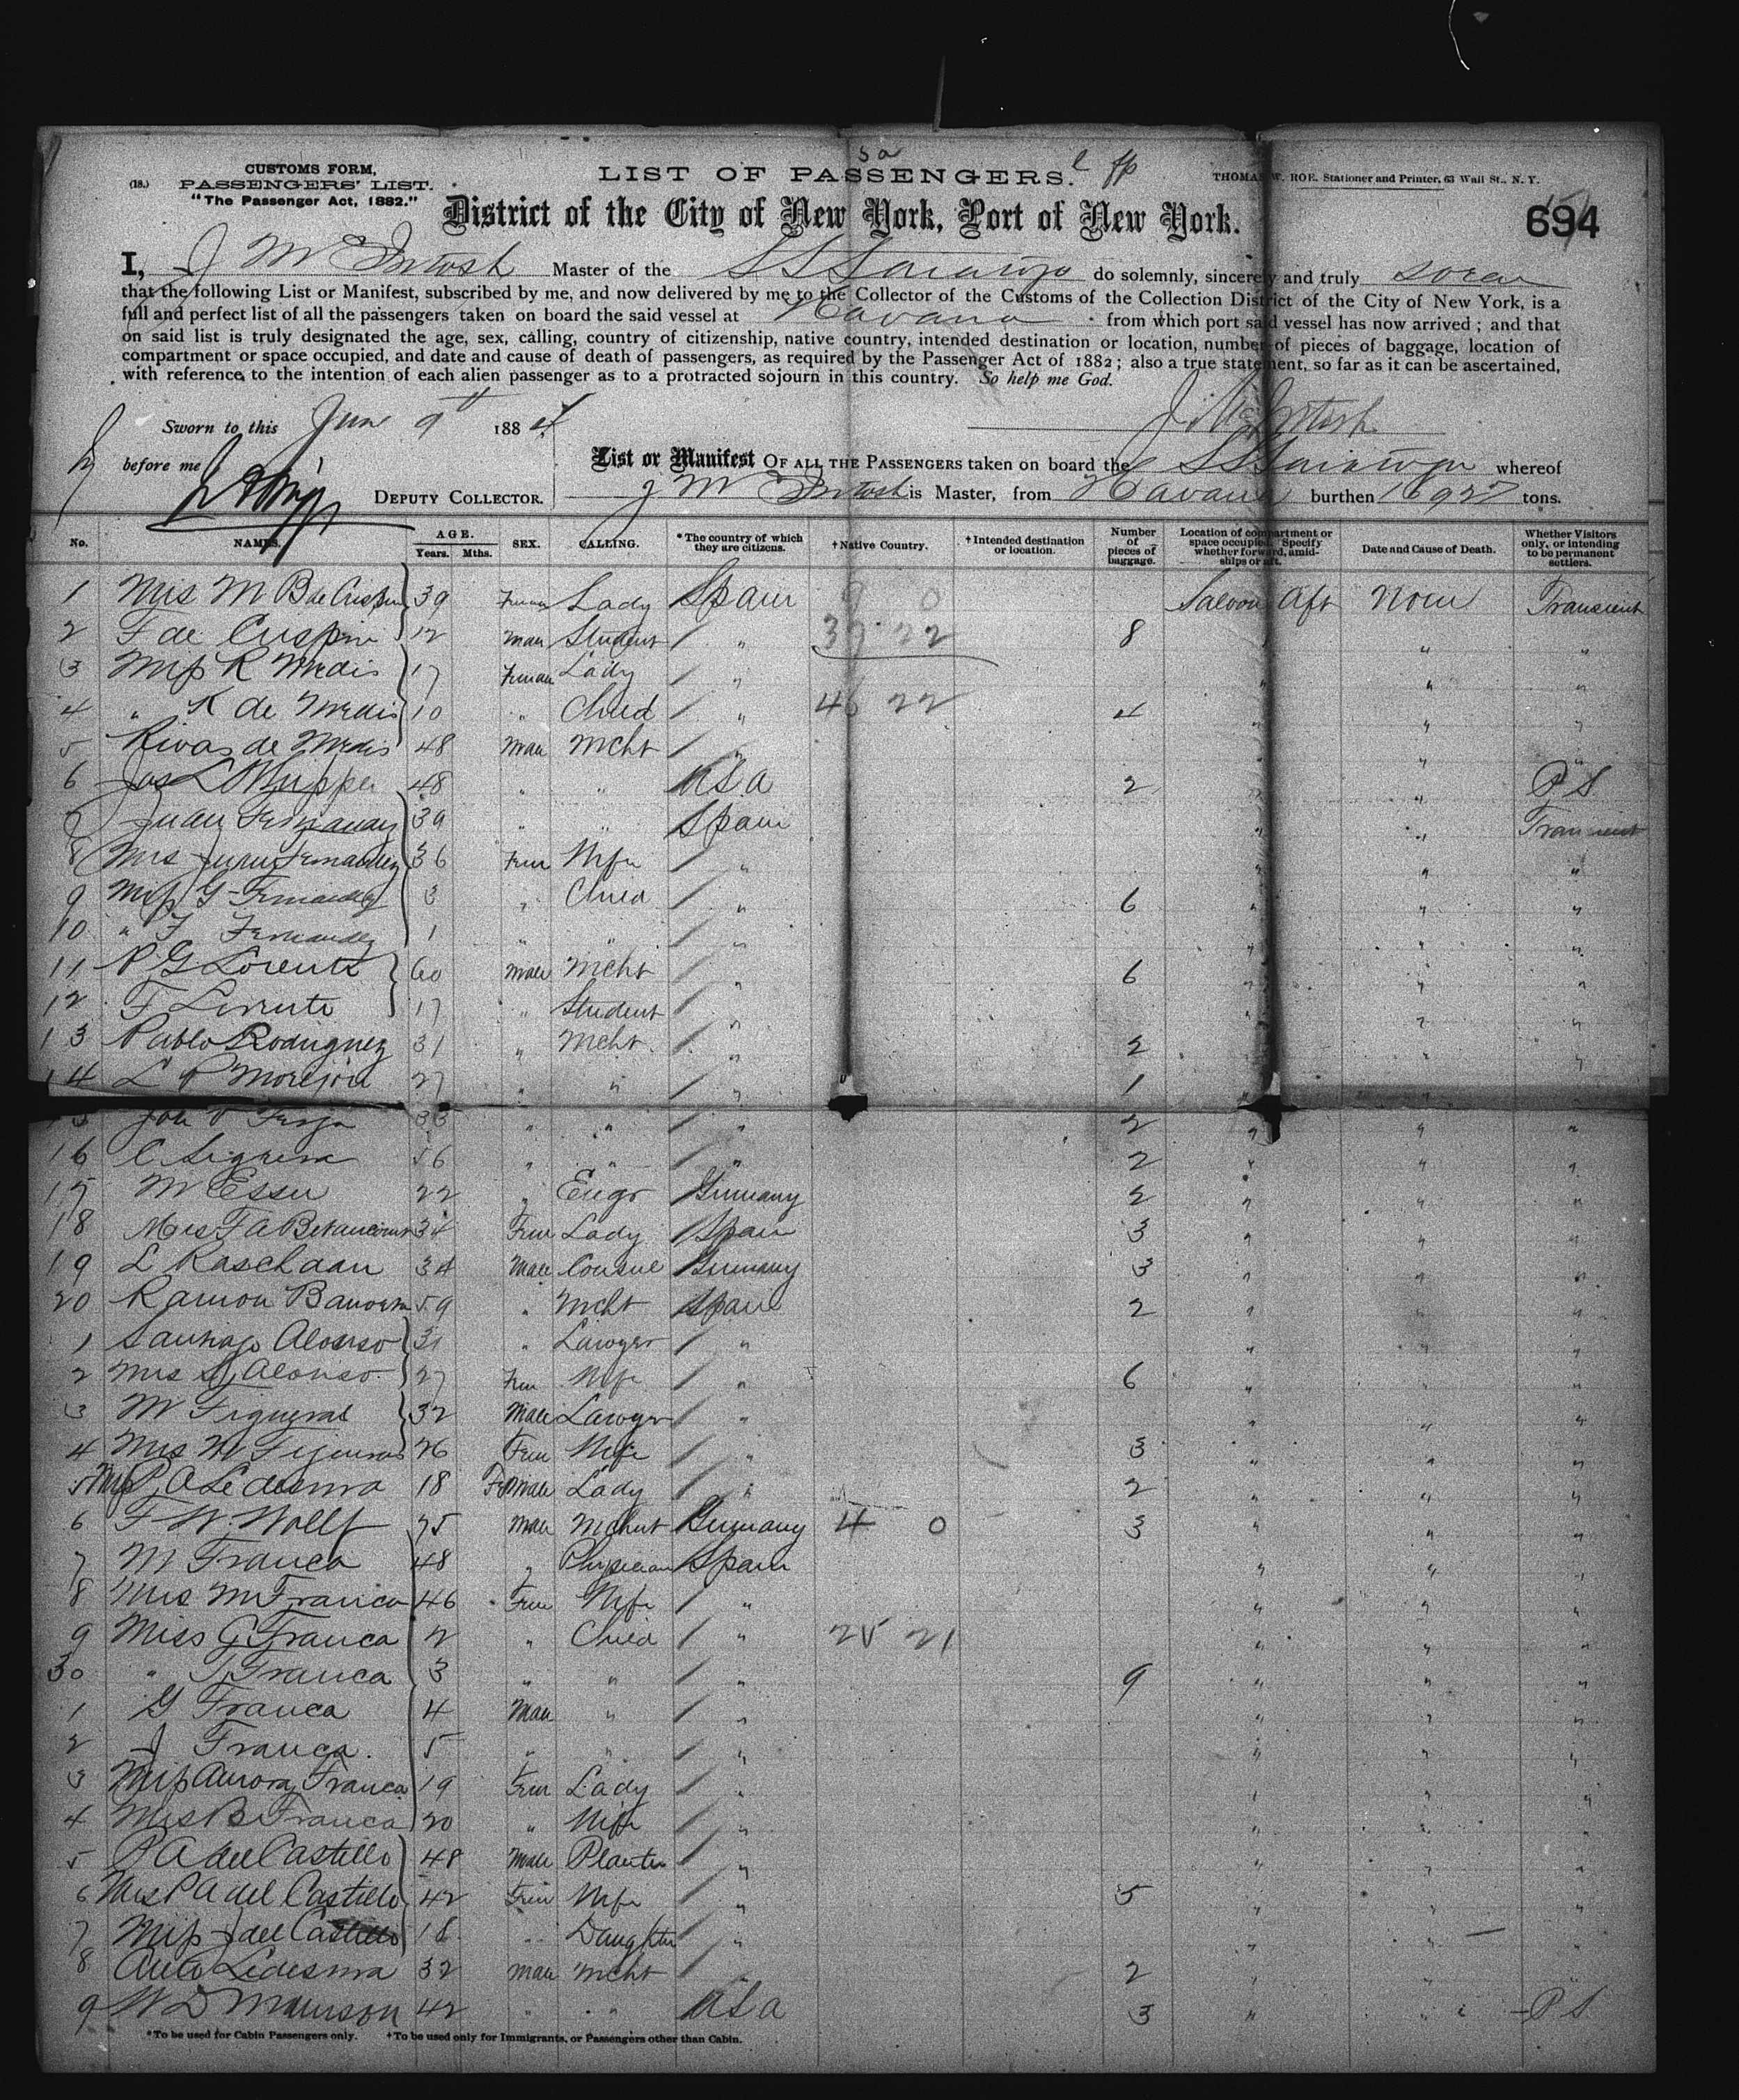 CUSTOMS FORM,
(18.) PASSENGERS' LIST.
"The Passenger Act, 1882."
LIST OF PASSENGERS.
THOMAS W. ROE. Stationer and Printer, 63 Wall St., N. Y.
District of the City of New York, Port of New York.
694
I, J McIntosh Master of the SS Saratoga do solemnly, sincerely and truly swear
that the following List or Manifest, subscribed by me, and now delivered by me to the Collector of the Customs of the Collection District of the City of New York, is a
full and perfect list of all the passengers taken on board the said vessel at Havana from which port said vessel has now arrived ; and that
on said list is truly designated the age, sex, calling, country of citizenship, native country, intended destination or location, number of pieces of baggage, location of
compartment or space occupied, and date and cause of death of passengers, as required by the Passenger Act of 1882 ; also a true statement, so far as it can be ascertained,
with reference to the intention of each alien passenger as to a protracted sojourn in this country. So help me God.
J McIntosh
Sworn to this June 9th 1884
before me
DEPUTY COLLECTOR.
List or Manifest OF ALL THE PASSENGERS taken on board the SS Saratoga whereof
J McIntosh is Master, from Havana burthen 1692 tons.
No. NAMES. AGE. Years. Mths. SEX. CALLING. *The country of which they are citizens. †Native Country. †Intended destination or location. Number of pieces of baggage. Location of compartment or space occupied. Specify whether forward, amidships or aft. Date and Cause of Death. Whether Visitors only, or intending to be permanent settlers.
1 Mrs M B de Crispin 39 Female Lady Spain 9 0 Saloon Aft None Transient
2 F de Crispin 12 Male Student / " 37 22 8 " " "
3 Miss R Medis 17 Female Lady / " " " "
4 " K de Medis 10 " Child / " 46 22 4 " " "
5 Rivas de Medis 48 Male Mcht / " " " "
6 Jas L 48 " " USA 2 " " P S
7 Juan Fernandez 39 " " Spain " " Transient
8 Mrs Juan Fernandez 36 Fem Wife / " " " "
9 Miss G Fernandez 3 " Child / " 6 " " "
10 " F Fernandez 1 " " / " " " "
11 P G Lorente 60 Male Mcht / " 6 " " "
12 F Lorente 17 " Student / " " " "
13 Pablo Rodriguez 31 " Mcht / " 2 " " "
14 L P Morejon 27 " " / " 1 " " "
15 33 " " / " 2 " " "
16 C Sigrera 56 " " / " 2 " " "
17 M Esser 22 " Engr Germany 2 " " "
18 Mrs F A Betancourt 34 Fem Lady Spain 3 " " "
19 L Raschdau 34 Male Consul Germany 3 " " "
20 Ramon 59 " Mcht Spain 2 " " "
1 Santiago Alonso 31 " Lawyer / " " " "
2 Mrs S Alonso 27 Fem Wife / " 6 " " "
3 M Figueras 32 Male Lawyer / " " " "
4 Mrs M Figueras 26 Fem Wife / " 3 " " "
5 Miss P A Ledesma 18 Female Lady / " 2 " " "
6 F W. Wolff 25 Male Mchnt Germany 4 0 3 " " "
7 M Franca 48 " Physician Spain " " "
8 Mrs M Franca 46 Fem Wife / " " " "
9 Miss G Franca 2 " Child / " 25 21 " " "
30 " J Franca 3 " " / " 9 " " "
1 G Franca 4 Male " / " " " "
2 J Franca. 5 " " / " " " "
3 Miss Aurora Franca 19 Fem Lady / " " " "
4 Mrs B Franca 20 " Wife / " " " "
5 P A del Castillo 48 Male Planter / " " " "
6 Mrs P A del Castillo 42 Fem Wife / " 5 " " "
7 Miss J del Castillo 18 " Daughter / " " " "
8 Anto Ledesma 32 Male Mcht / " 2 " " "
9 W D 42 " " USA 3 " " P S
*To be used for Cabin Passengers only. †To be used only for Immigrants, or Passengers other than Cabin.